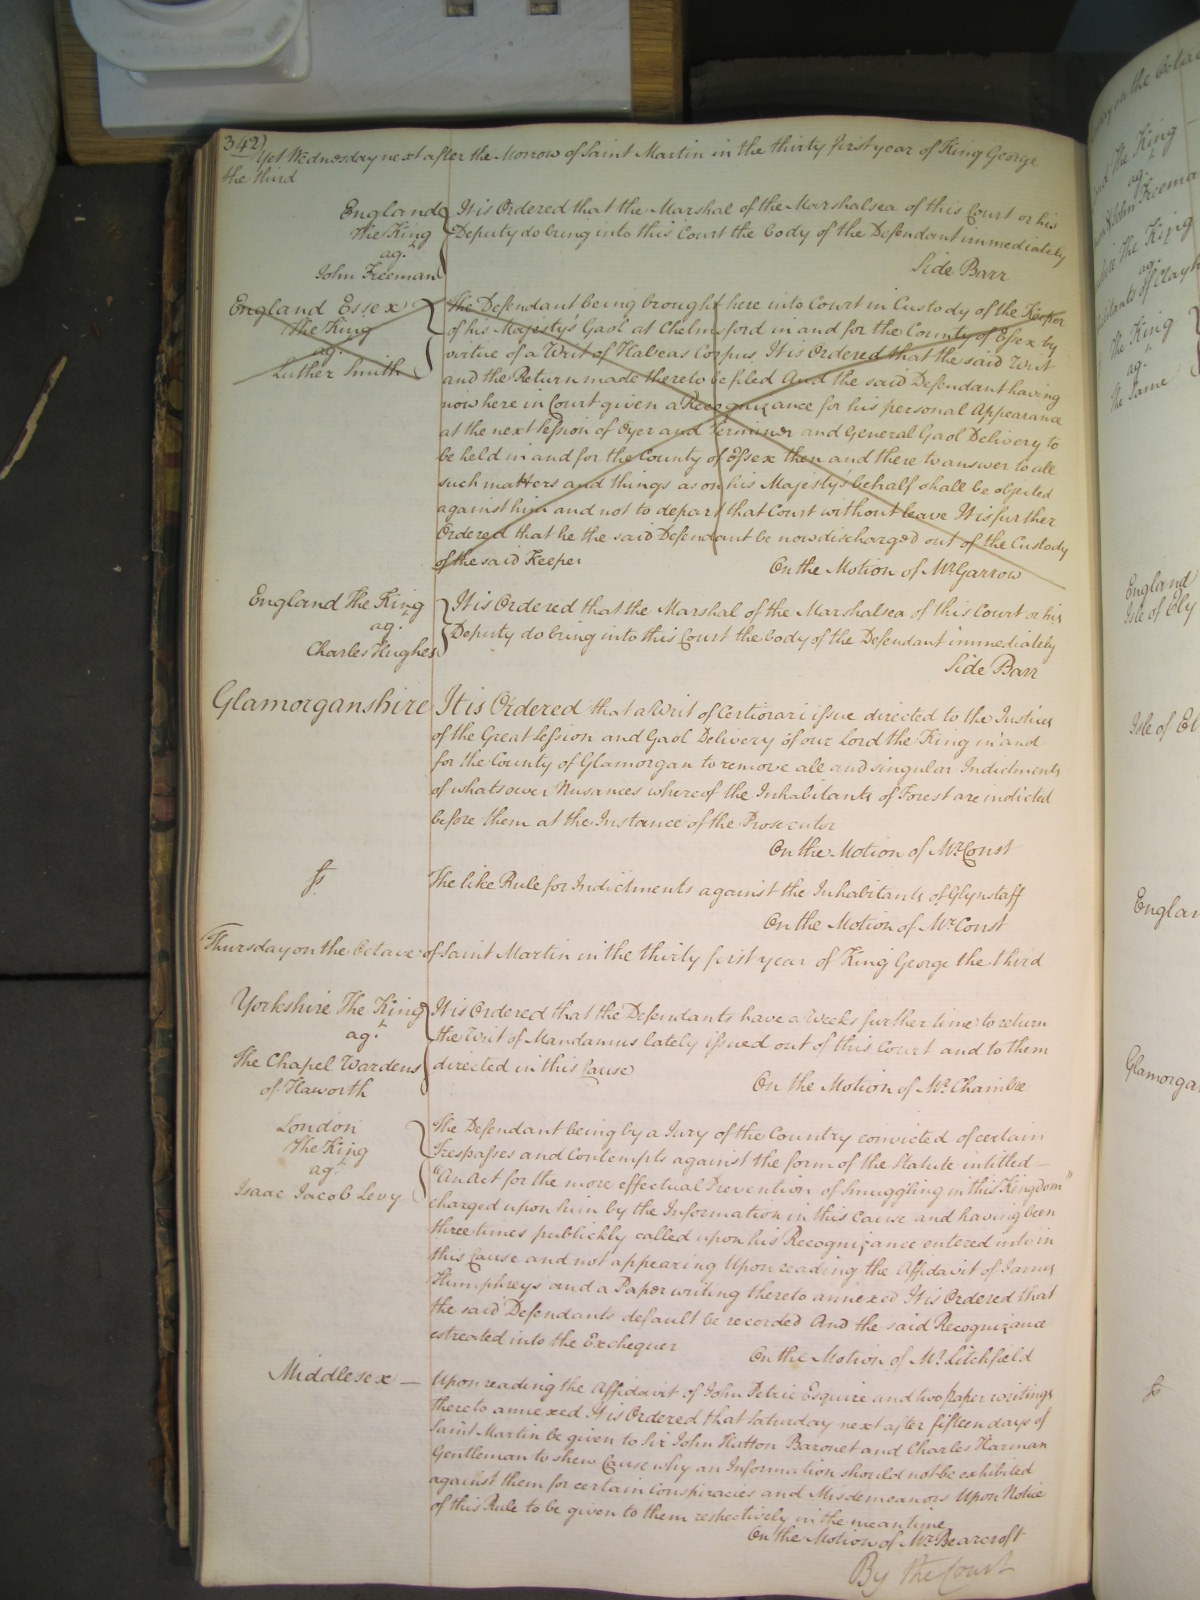 342)
Yet Wednesday next after the Morrow of Saint Martin in the thirty first year of King George
the third
England
The King
agt
John Freeman
It is Ordered that the Marshal of the Marshalsea of this Court or his
Deputy do bring into this Court the body of the Defendant immediately
Side Barr
England Essex
The King
agt
Luther Smith
The Defendant being brought here into Court in Custody of the Keeper
of his Majesty's Gaol at Chelmsford in and for the County of Essex by
virtue of a Writ of Habeas Corpus, It is Ordered that the said Writ
and the Return made thereto be filed And the said Defendant having
now here in Court given a Recognizance for his personal Appearance
at the next Session of Oyer and Terminer and General Gaol Delivery to
be held in and for the County of Essex then and there to answer to all
such matters and things as on his Majesty's behalf shall be objected
against him and not to depart that Court without leave It is further
Ordered that he the said Defendant be now discharged out of the Custody
of the said Keeper
On the Motion of Mr. Garrow
England The King
agt
Charles Hughes
It is Ordered that the Marshal of the Marshalsea of this Court or his
Deputy do bring into this Court the body of the Defendant immediately
Side Barr
Glamorganshire
It is Ordered that a Writ of Certiorari issue directed to the Justices
of the Great Session and Gaol Delivery of our Lord the King in and
for the County of Glamorgan to remove all and singular Indictments
of whatsoever Nusances whereof the Inhabitants of Forest are indicted
before them at the Instance of the Prosecutor
On the Motion of Mr. Const
fs
The like Rule for Indictments against the Inhabitants of Glynstaff
On the Motion of Mr. Const
Thursday on the Octave of Saint Martin in the thirty first year of King George the third
Yorkshire The King
agt
The Chapel Wardens
of Haworth
It is Ordered that the Defendants have a Weeks further time to return
the Writ of Mandamus lately issued out of this Court and to them
directed in this Cause
On the Motion of Mr. Chambre
London
The King
agt
Isaac Jacob Levy
The Defendant being by a Jury of the Country convicted of certain
Trespasses and Contempts against the form of the Statute intitled —
"An Act for the more effectual Prevention of Smuggling in this Kingdom"
charged upon him by the Information in this Cause and having been
three times publickly called upon his Recognizance entered into in
this Cause and not appearing Upon reading the Affidavit of James
Humphreys and a Paper writing thereto annexed It is Ordered that
the said Defendants default be recorded And the said Recognizance
estreated into the Exchequer
On the Motion of Mr. Litchfield
Middlesex —
Upon reading the Affidavit of John Petrie Esquire and two paper writings
thereto annexed It is Ordered that Saturday next after fifteen days of
Saint Martin be given to Sir John Hatton Baronet and Charles Harman
Gentleman to shew Cause why an Information should not be exhibited
against them for certain Conspiracies and Misdemeanors Upon Notice
of this Rule to be given to them respectively in the mean time
On the Motion of Mr. Bearcroft
By the Court
the King
agt
John Freeman
the King
agt
The King
agt
the Same
England
Isle of Ely
Isle of El
Englan
Glamorga
fs